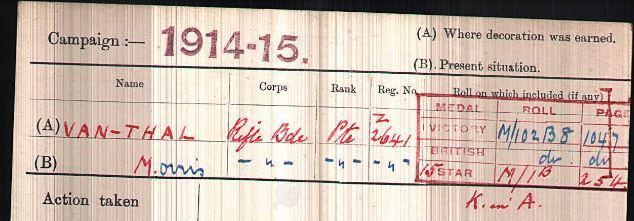 Campaign :— 1914-15.
(A) Where decoration was earned.
(B) Present situation.
Name Corps Rank Reg. No. Roll on which included (if any)
MEDAL ROLL PAGE
(A) VAN-THAL Rifle Bde Pte Z 2641 VICTORY M/102B8 1047
(B) Morris -"- -"- -"- BRITISH do. do
15 STAR M/1B 254
Action taken K. in A.